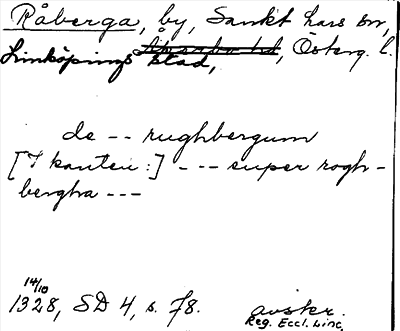 Råberga, by, Sankt Lars sn,
Linköpings stad, Åkerbo hd, Österg. l.
de -- rughbergum
[I kanten:] --- super rogh-
bergha ---
14/10
1328, SD 4, s. 78.
avskr.
Reg. Eccl. Linc.